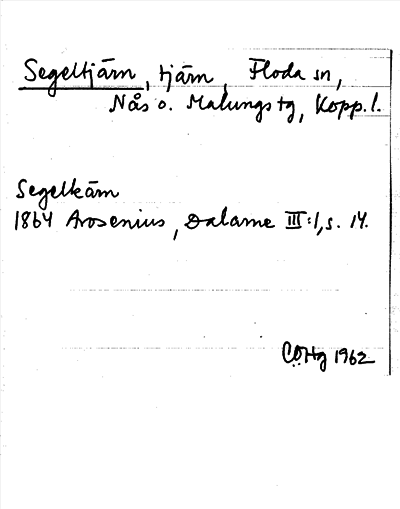 Segeltjärn, tjärn, Floda sn,
Nås o. Malungs tg, Kopp. l.
Segelkärn
1864 Arosenius, Dalarne III:1, s. 14.
CÖHg 1962